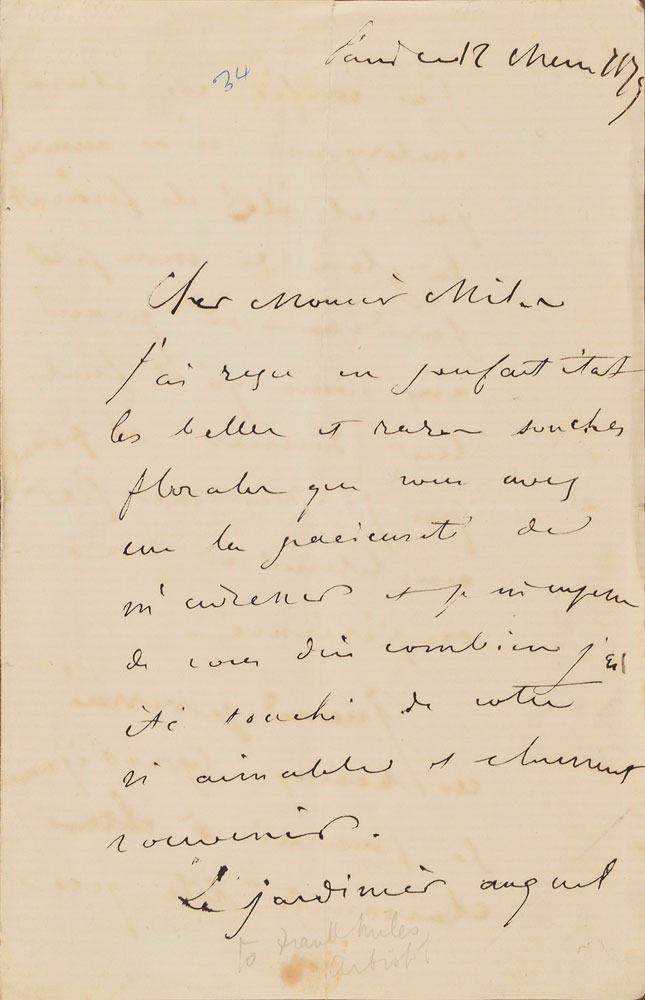 34
Cher Monsieur Miles
J'ai reçu en parfait état
les belles et rares souches
florales que vous avez
eu la gracieuseté de
m'adresser et je m'empresse
de vous dire combien j'ai
été touché de votre
si aimable et charmant
souvenir.
Le jardinier auquel
To Frank Miles,
Artist